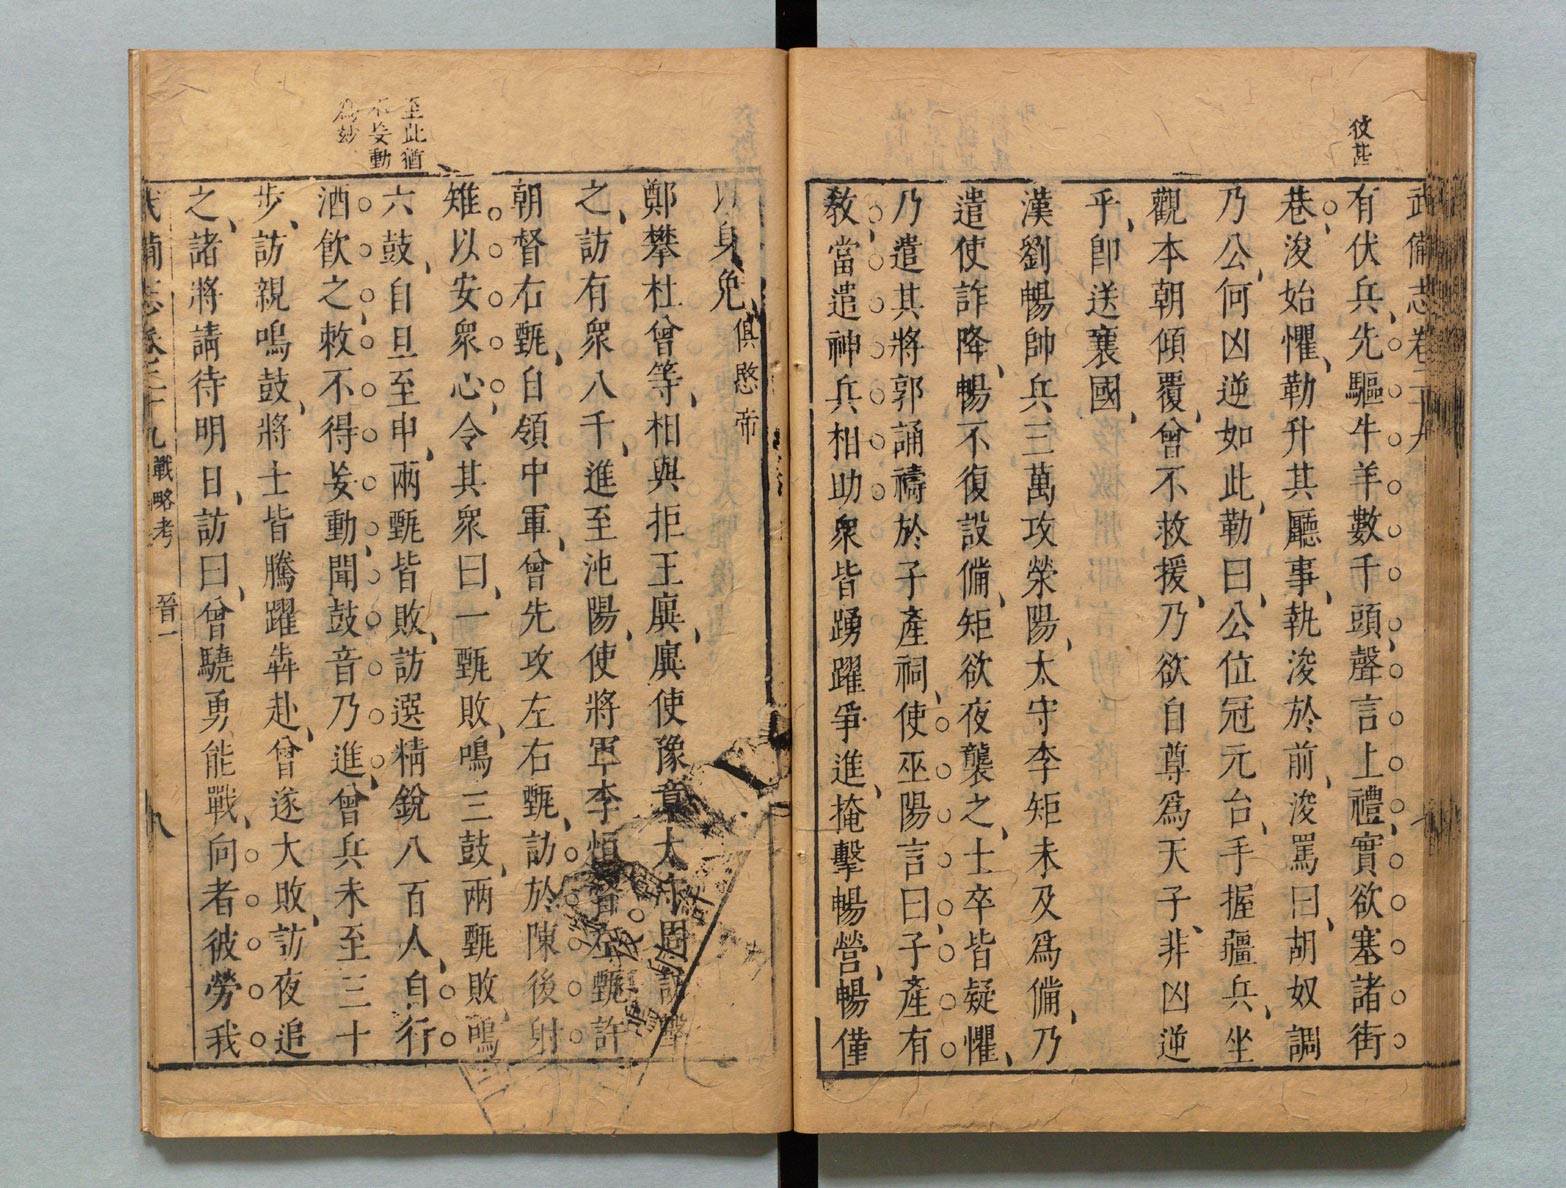 彼甚
武備志卷二十九
有伏兵先驅牛羊數千頭聲言上禮實欲塞諸街
巷浚始懼勒升其廳事執浚於前浚罵曰胡奴調
乃公何凶逆如此勒曰公位冠元台手握疆兵坐
觀本朝傾覆曾不救援乃欲自尊爲天子非凶逆
乎卽送襄國
漢劉暢帥兵三萬攻滎陽太守李矩未及爲備乃
遣使詐降暢不復設備矩欲夜襲之士卒皆疑懼
乃遣其將郭誦禱於子產祠使巫陽言曰子產有
敎當遣神兵相助衆皆踴躍爭進掩擊暢營暢僅
以身免俱愍帝
鄭攀杜曾等相與拒王廙廙使豫章太守周訪擊
之訪有衆八千進至沌陽使將軍李恒督左甄許
朝督右甄自領中軍曾先攻左右甄訪於陳後射
雉以安衆心令其衆曰一甄敗鳴三鼓兩甄敗鳴
六鼓自旦至申兩甄皆敗訪選精銳八百人自行
酒飮之敕不得妄動聞鼓音乃進曾兵未至三十
步訪親鳴鼓將士皆騰躍犇赴曾遂大敗訪夜追
之諸將請待明日訪曰曾驍勇能戰向者彼勞我
至此猶
不妄動
爲妙
武備志卷二十九 戰略考 晉一 八